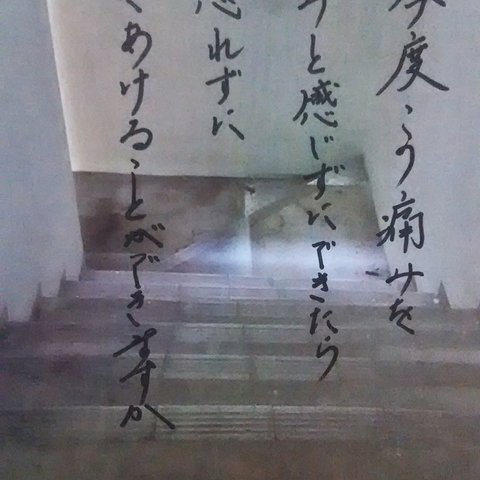 今度こう痛みを
と感じずにできたら
忘れずに
くあけることができますか